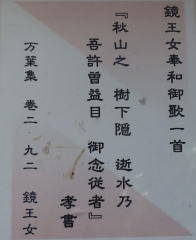 鏡王女奉和御歌一首
『秋山之 樹下隠 逝水乃
吾許曽益目 御念従者』
孝書
万葉集 巻二 九二 鏡王女